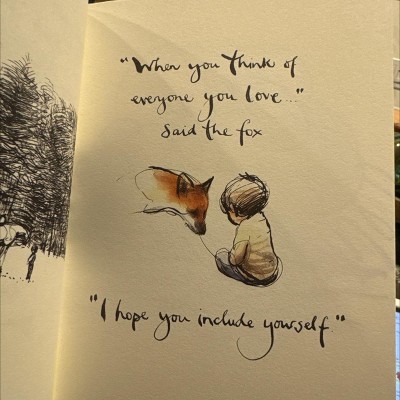 "When you think of
everyone you love..."
said the fox
"I hope you include yourself."